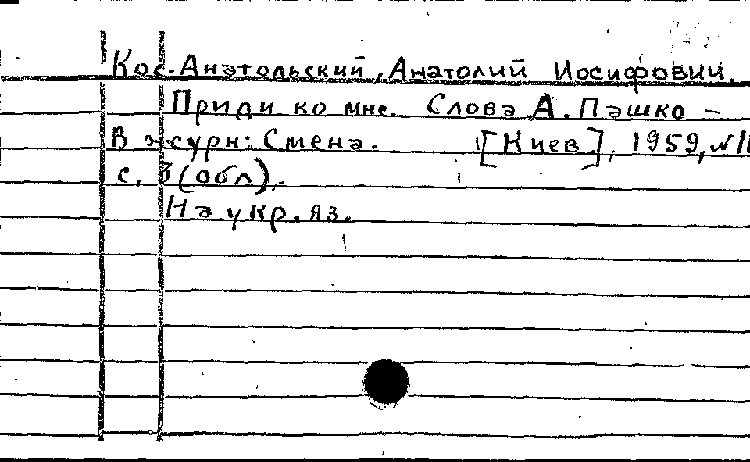 Кос-Анатольский, Анатолий Иосифович.
Приди ко мне. Слова А. Пашко –
В журн: Смена. [Киев], 1959, №11
с. 3 (обл).
На укр. яз.